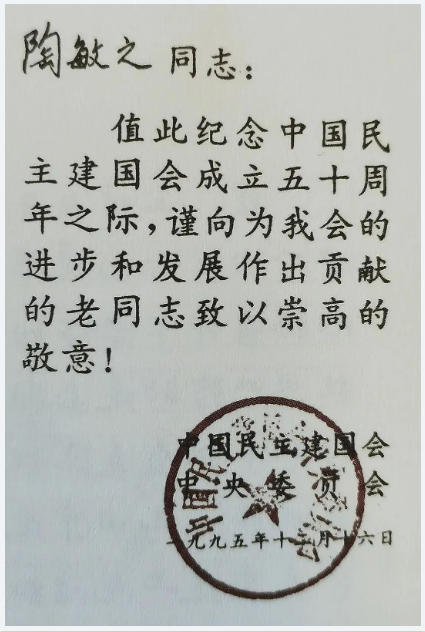 陶敏之 同志：
值此纪念中国民
主建国会成立五十周
年之际，谨向为我会的
进步和发展作出贡献
的老同志致以崇高的
敬意！
中国民主建国会
中央委员会
一九九五年十二月十六日